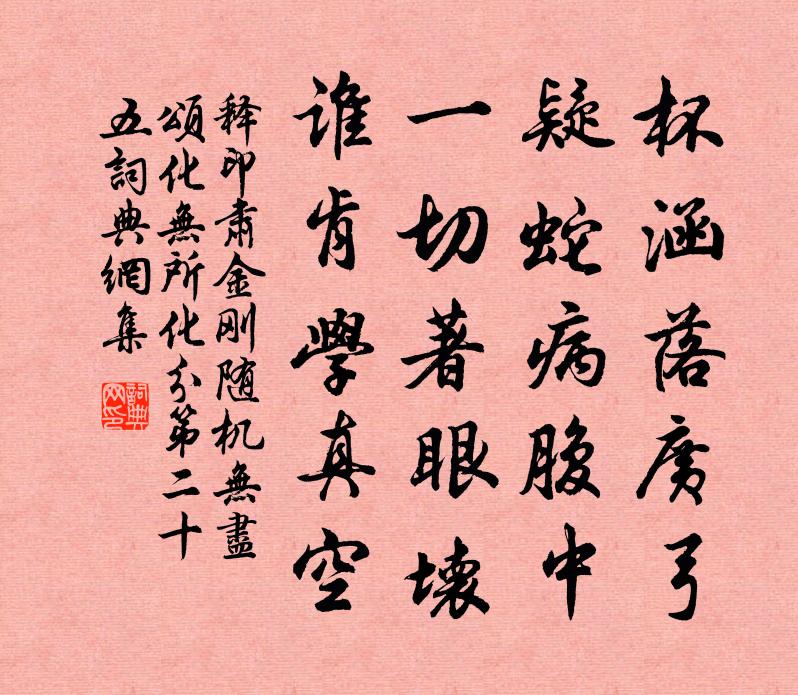 杯涵落广弓
疑蛇病腹中
一切著眼壞
谁肯學真空
释印肃金刚随机無盡
頌化無所化分第二十
五詞典網集
詞典网印